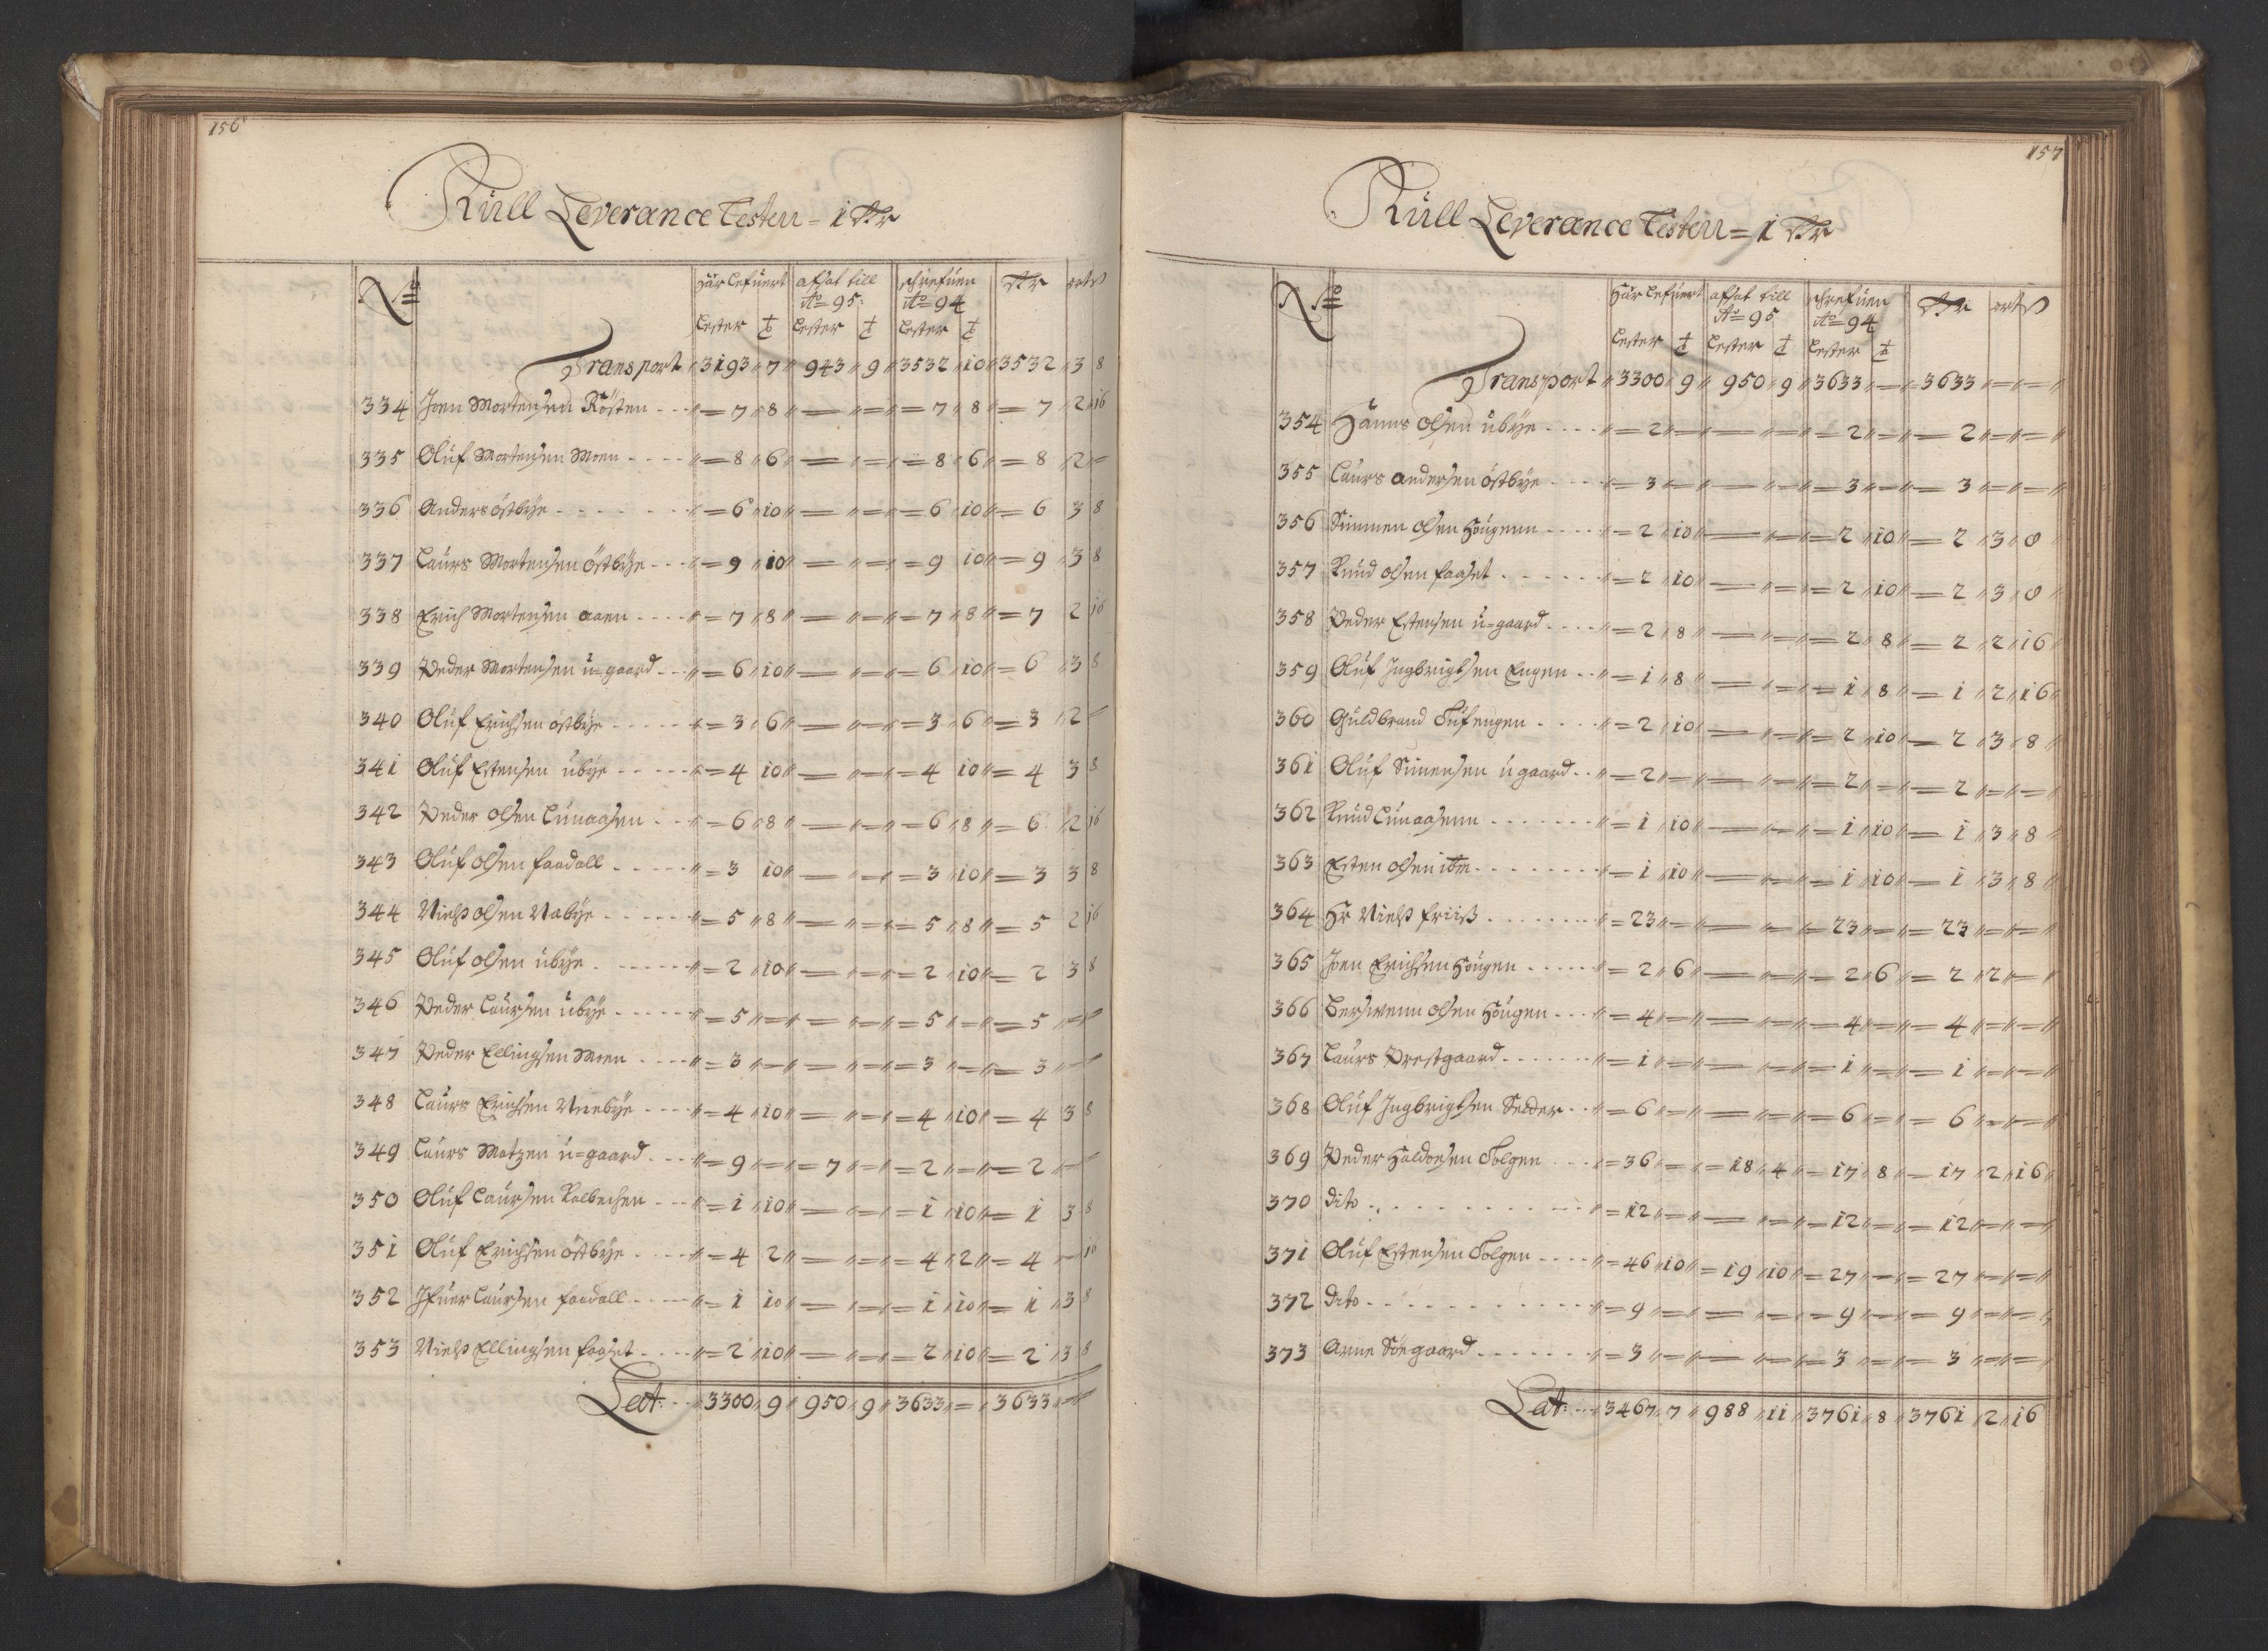 156
Küll Leverance Lesten = 1 Rdr
No
Har lefuert afsat till skrefuen Rdr ort ß
Ao 95: Ao 94
Lester t Lester t Lester t
Transport 3193 7 943 9 3532 10 3532 3 8
334 Joen Mortensen Rösten - - - = 7 8 — = = 7 8 = 7 2 16
335 Oluf Mortensen Moen - - - - = 8 6 — = = 8 6 = 8 2 —
336 Anders östbÿe - - - - - - = 6 10 — = = 6 10 = 6 3 8
337 Laurs Mortensen östbÿe - - - = 9 10 — = = 9 10 = 9 3 8
338 Erich Mortensen aaen - - - - = 7 8 — = = 7 8 = 7 2 16
339 Peder Mortensen u=gaard - - - = 6 10 — = = 6 10 = 6 3 8
340 Oluf Erichsen östbÿe - - - - - = 3 6 — = = 3 6 = 3 2 =
341 Oluf Estensen ubÿe - - - - - = 4 10 — = = 4 10 = 4 3 8
342 Peder olsen Lunaasen - - - = 6 8 — = = 6 8 = 6 2 16
343 Oluf olsen faadall - - - - - = 3 10 — = = 3 10 = 3 3 8
344 Nielß olsen Nabÿe - - - - - = 5 8 — = = 5 8 = 5 2 16
345 Oluf olsen ubÿe - - - - - - = 2 10 — = = 2 10 = 2 3 8
346 Peder Laursen ubÿe - - - - - = 5 = — = = 5 = = 5 = =
347 Peder Ellingsen Moen - - - - = 3 = — = = 3 = = 3 = =
348 Laurs Erichsen Nrebÿe - - - - = 4 10 — = = 4 10 = 4 3 8
349 Laurs Matzen u=gaard - - - = 9 = = 7 = = 2 = = 2 = =
350 Oluf Laursen Kolbechen - - - = 1 10 — = = 1 10 = 1 3 8
351 Oluf Erichsen östbÿe - - - - = 4 2 — = = 4 2 = 4 — 16
352 Ifuer Laursen faadall - - - - = 1 10 — = = 1 10 = 1 3 8
353 Nielß Ellingsen faaset - - - - = 2 10 — = = 2 10 = 2 3 8
Lat: - - 3300 9 950 9 3633 = 3633 = =
157
Küll Leverance Lesten = 1 Rdr
No
Har lefuert afsat till skrefuen Rdr ort ß
Ao 95 Ao 94
Lester t Lester t Lester t
Transport 3300 9 950 9 3633 — 3633 = =
354 Hanns olsen ubÿe - - - - = 2 = — = = 2 = = 2 = =
355 Laurs andersen östbÿe - - - - = 3 = — = = 3 = = 3 = =
356 Simmen olsen Hougenn - - - - = 2 10 — = = 2 10 = 2 3 8
357 Knud olsen faaset - - - - - - = 2 10 — = = 2 10 = 2 3 8
358 Peder Estensen u=gaard - - - - = 2 8 — = = 2 8 = 2 2 16
359 Oluf Ingbrigtsen Engen - - = 1 8 — = = 1 8 = 1 2 16
360 Guldbrand Tufengen - - - - = 2 10 — = = 2 10 = 2 3 8
361 Oluf Simensen u gaard - - = 2 = — = = 2 = = 2 = =
362 Knud Lunaasenn - - - - - - = 1 10 — = = 1 10 = 1 3 8
363 Esten olsen ibm - - - - - - - = 1 10 — = = 1 10 = 1 3 8
364 Hr Nielß friiß - - - - - - - = 23 = — = = 23 = = 23 = =
365 Joen Erichsen Hougen - - - - - = 2 6 — = = 2 6 = 2 2 =
366 Berswenn olsen Hougen - - - = 4 = — = = 4 = = 4 = =
367 Laurs Prestgaard - - - - - - = 1 = — = = 1 = = 1 = =
368 Oluf Ingbrigtsen Sedder - - = 6 = — = = 6 = = 6 = =
369 Peder Haldorsen Tolgen - - - = 36 = = 18 4 = 17 8 = 17 2 16
370 dito - - - - - - - - - = 12 = — = = 12 = = 12 = =
371 Oluf Estensen Tolgen - - - - = 46 10 = 19 10 = 27 = = 27 = =
372 dito - - - - - - - - - - - = 9 = — = = 9 = = 9 = =
373 Arne Söegaard - - - - - - - = 3 = — = = 3 = = 3 = =
Lat: - - 3467 7 988 11 3761 8 3761 2 16